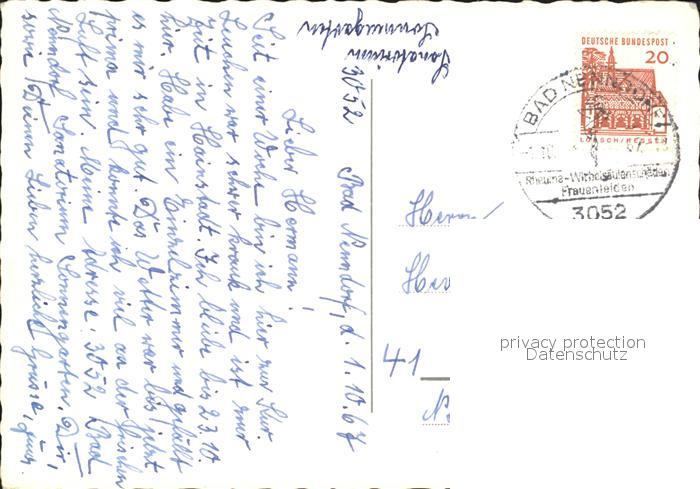 Sanatorium
Sonnengarten
3052 Bad Nenndorf, d. 1.10.67
Lieber Hermann!
Seit einer Woche bin ich hier zur Kur.
Lenchen war schwer krank und ist nur
zeit in Hainstadt. Ich bleibe bis 23.10.
hier. Habe ein Einzelzimmer und gefällt
es mir sehr gut. Das Wetter war bis jetzt
prima und konnte ich viel an der frischen
Luft sein. Meine Adresse: 3052 Bad
Nenndorf Sanatorium Sonnengarten. Dir,
sowie Deinen Lieben herzliche Grüsse,
Herrn
41
DEUTSCHE BUNDESPOST
20
LORSCH/HESSEN
BAD NENNDORF
Rheuma-Wirbelsäulenschäden
Frauenleiden
3052
privacy protection
Datenschutz